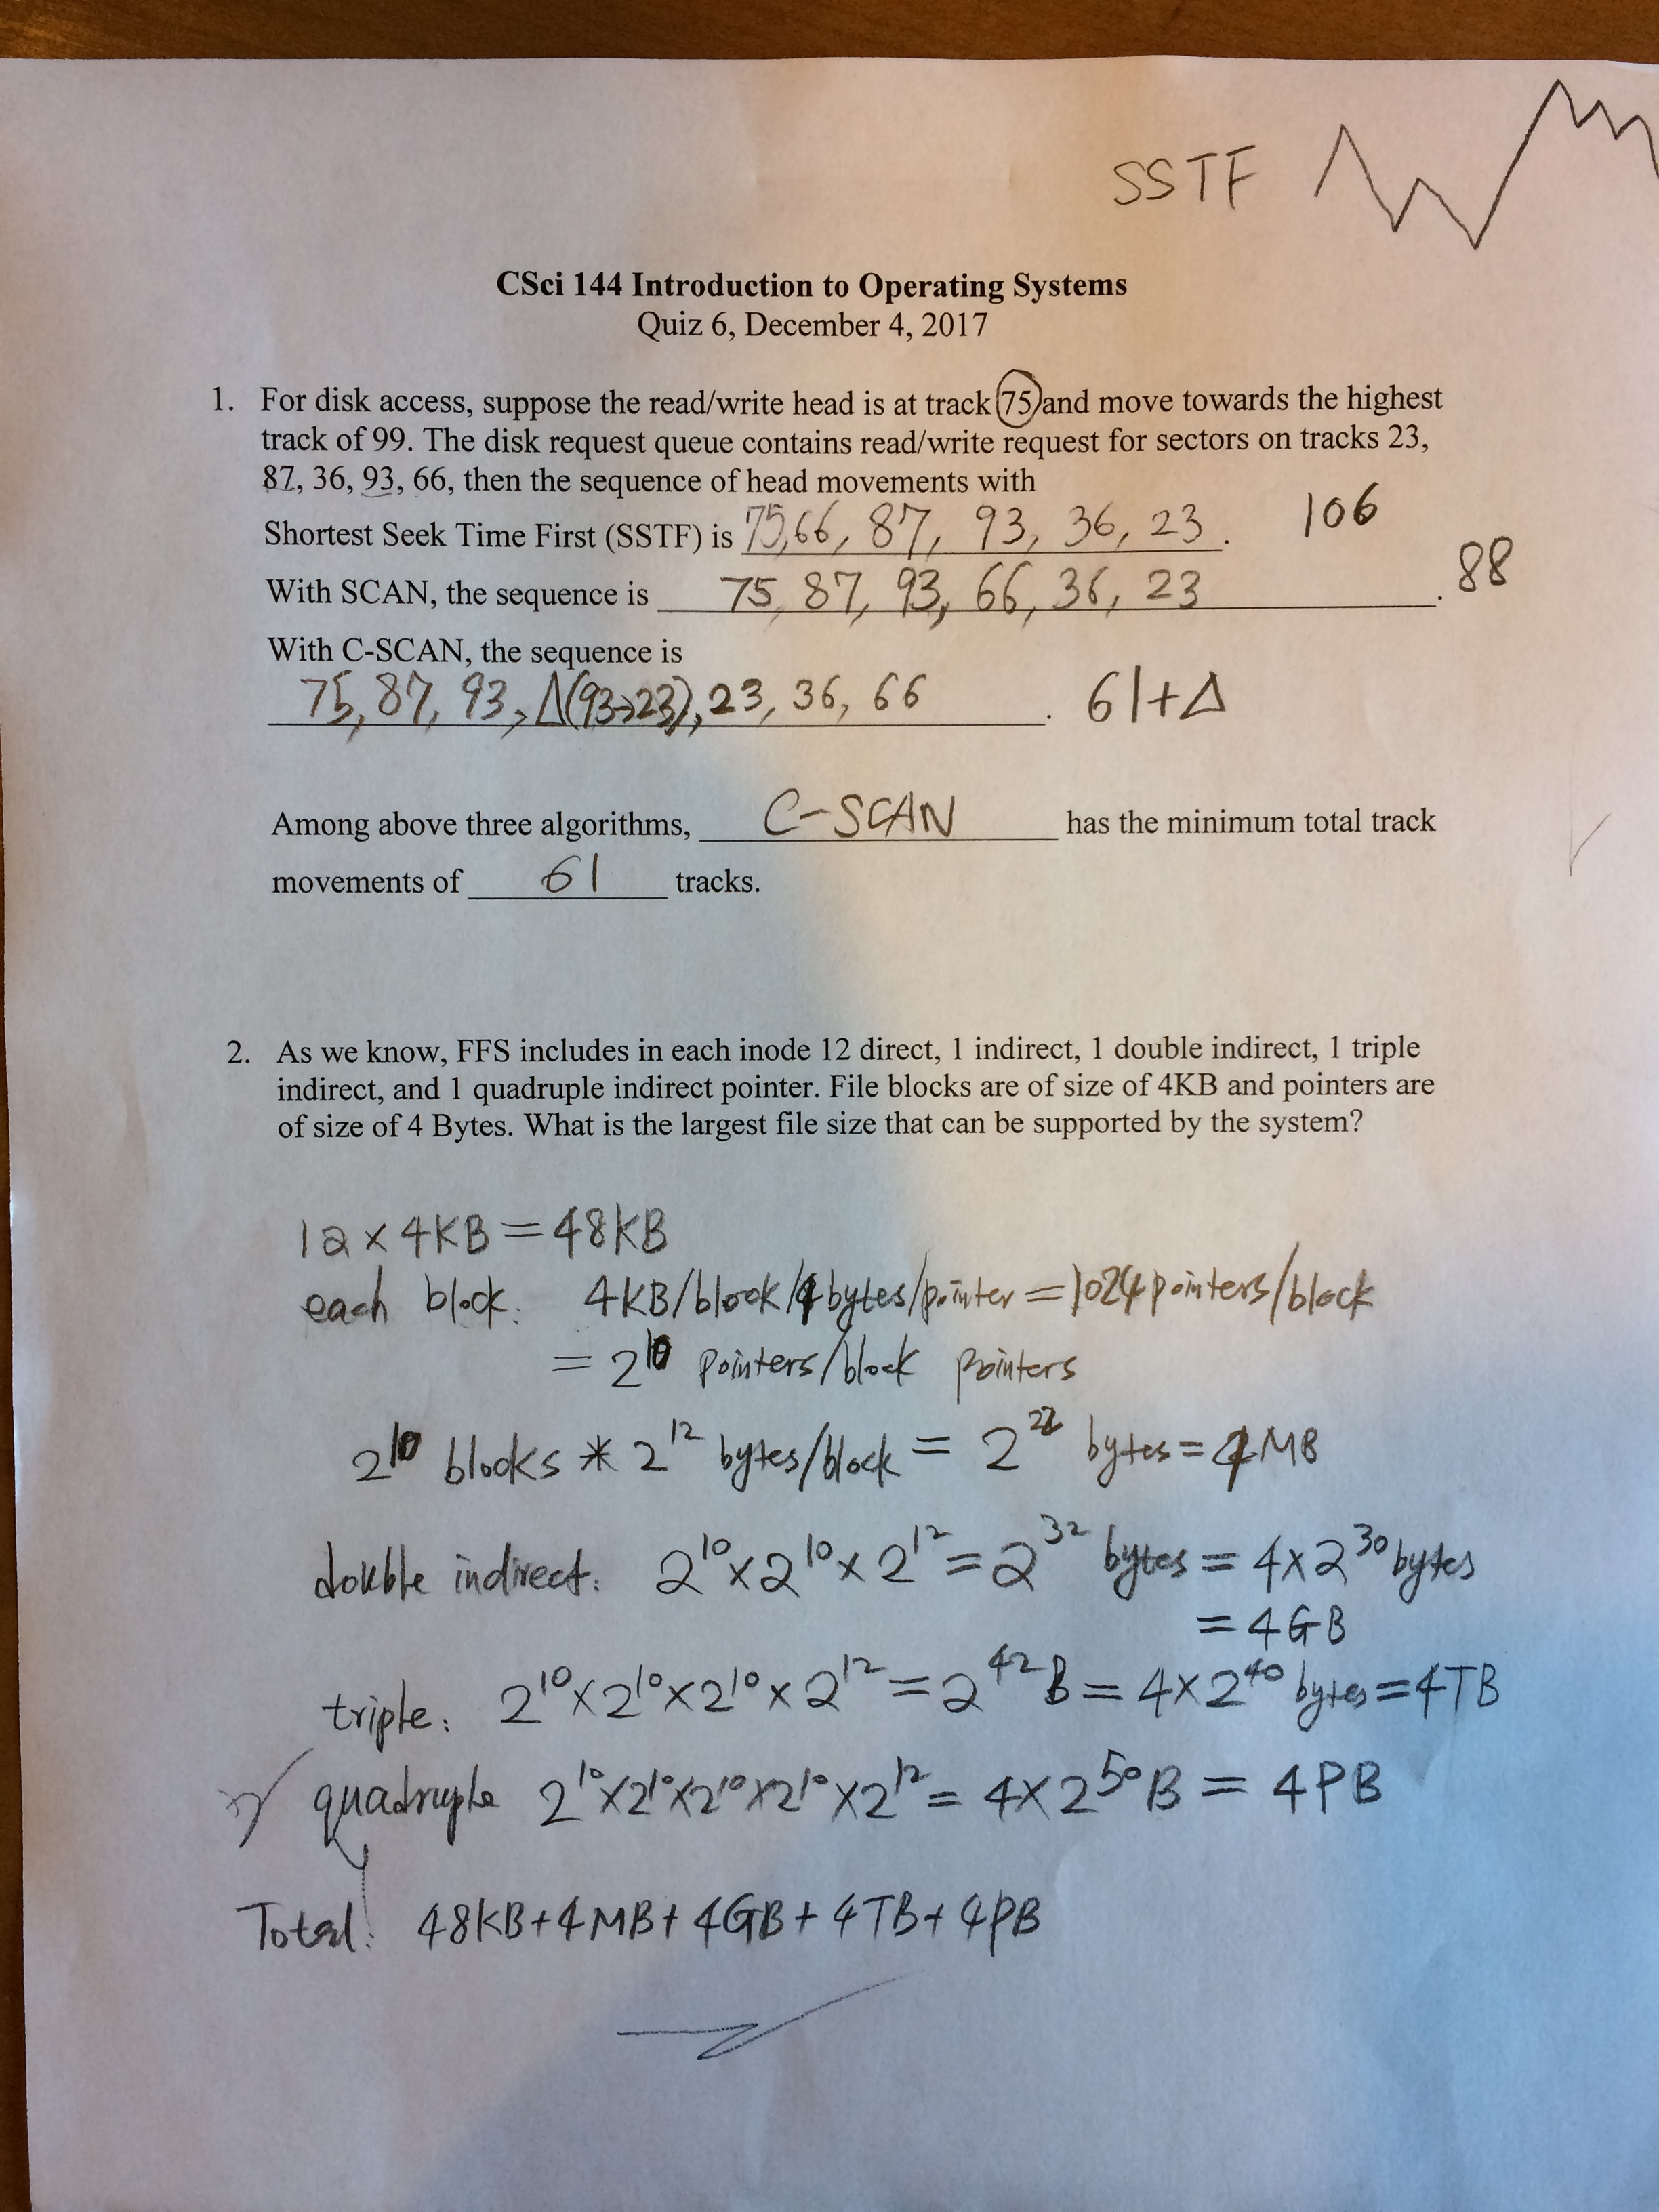 SSTF
CSci 144 Introduction to Operating Systems
Quiz 6, December 4, 2017
1. For disk access, suppose the read/write head is at track 75 and move towards the highest
track of 99. The disk request queue contains read/write request for sectors on tracks 23,
87, 36, 93, 66, then the sequence of head movements with
Shortest Seek Time First (SSTF) is 75, 66, 87, 93, 36, 23. 106
With SCAN, the sequence is 75, 87, 93, 66, 36, 23. 88
With C-SCAN, the sequence is
75, 87, 93, Δ(93→23), 23, 36, 66. 61+Δ
Among above three algorithms, C-SCAN has the minimum total track
movements of 61 tracks.
2. As we know, FFS includes in each inode 12 direct, 1 indirect, 1 double indirect, 1 triple
indirect, and 1 quadruple indirect pointer. File blocks are of size of 4KB and pointers are
of size of 4 Bytes. What is the largest file size that can be supported by the system?
12 × 4KB = 48KB
each block: 4KB/block/4 bytes/pointer = 1024 pointers/block
= 2^10 pointers/block pointers
2^10 blocks * 2^12 bytes/block = 2^22 bytes = 4MB
double indirect: 2^10 × 2^10 × 2^12 = 2^32 bytes = 4 × 2^30 bytes
= 4GB
triple: 2^10 × 2^10 × 2^10 × 2^12 = 2^42 B = 4 × 2^40 bytes = 4TB
quadruple 2^10 × 2^10 × 2^10 × 2^10 × 2^12 = 4 × 2^50 B = 4PB
Total: 48KB + 4MB + 4GB + 4TB + 4PB